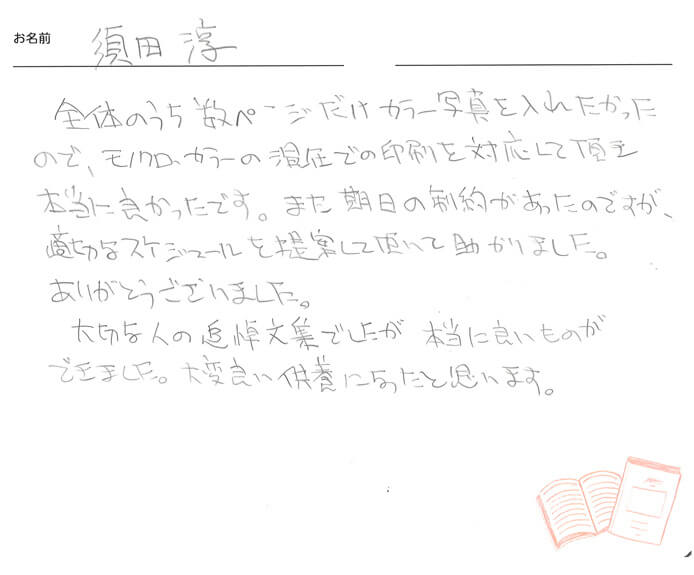 お名前 須田 淳
全体のうち数ページだけカラー写真を入れたかった
ので、モノクロ、カラーの混在での印刷を対応して頂き
本当に良かったです。また期日の制約があったのですが、
適切なスケジュールを提案して頂いて助かりました。
ありがとうございました。
大切な人の追悼文集でしたが 本当に良いものが
できました。大変良い供養になったと思います。